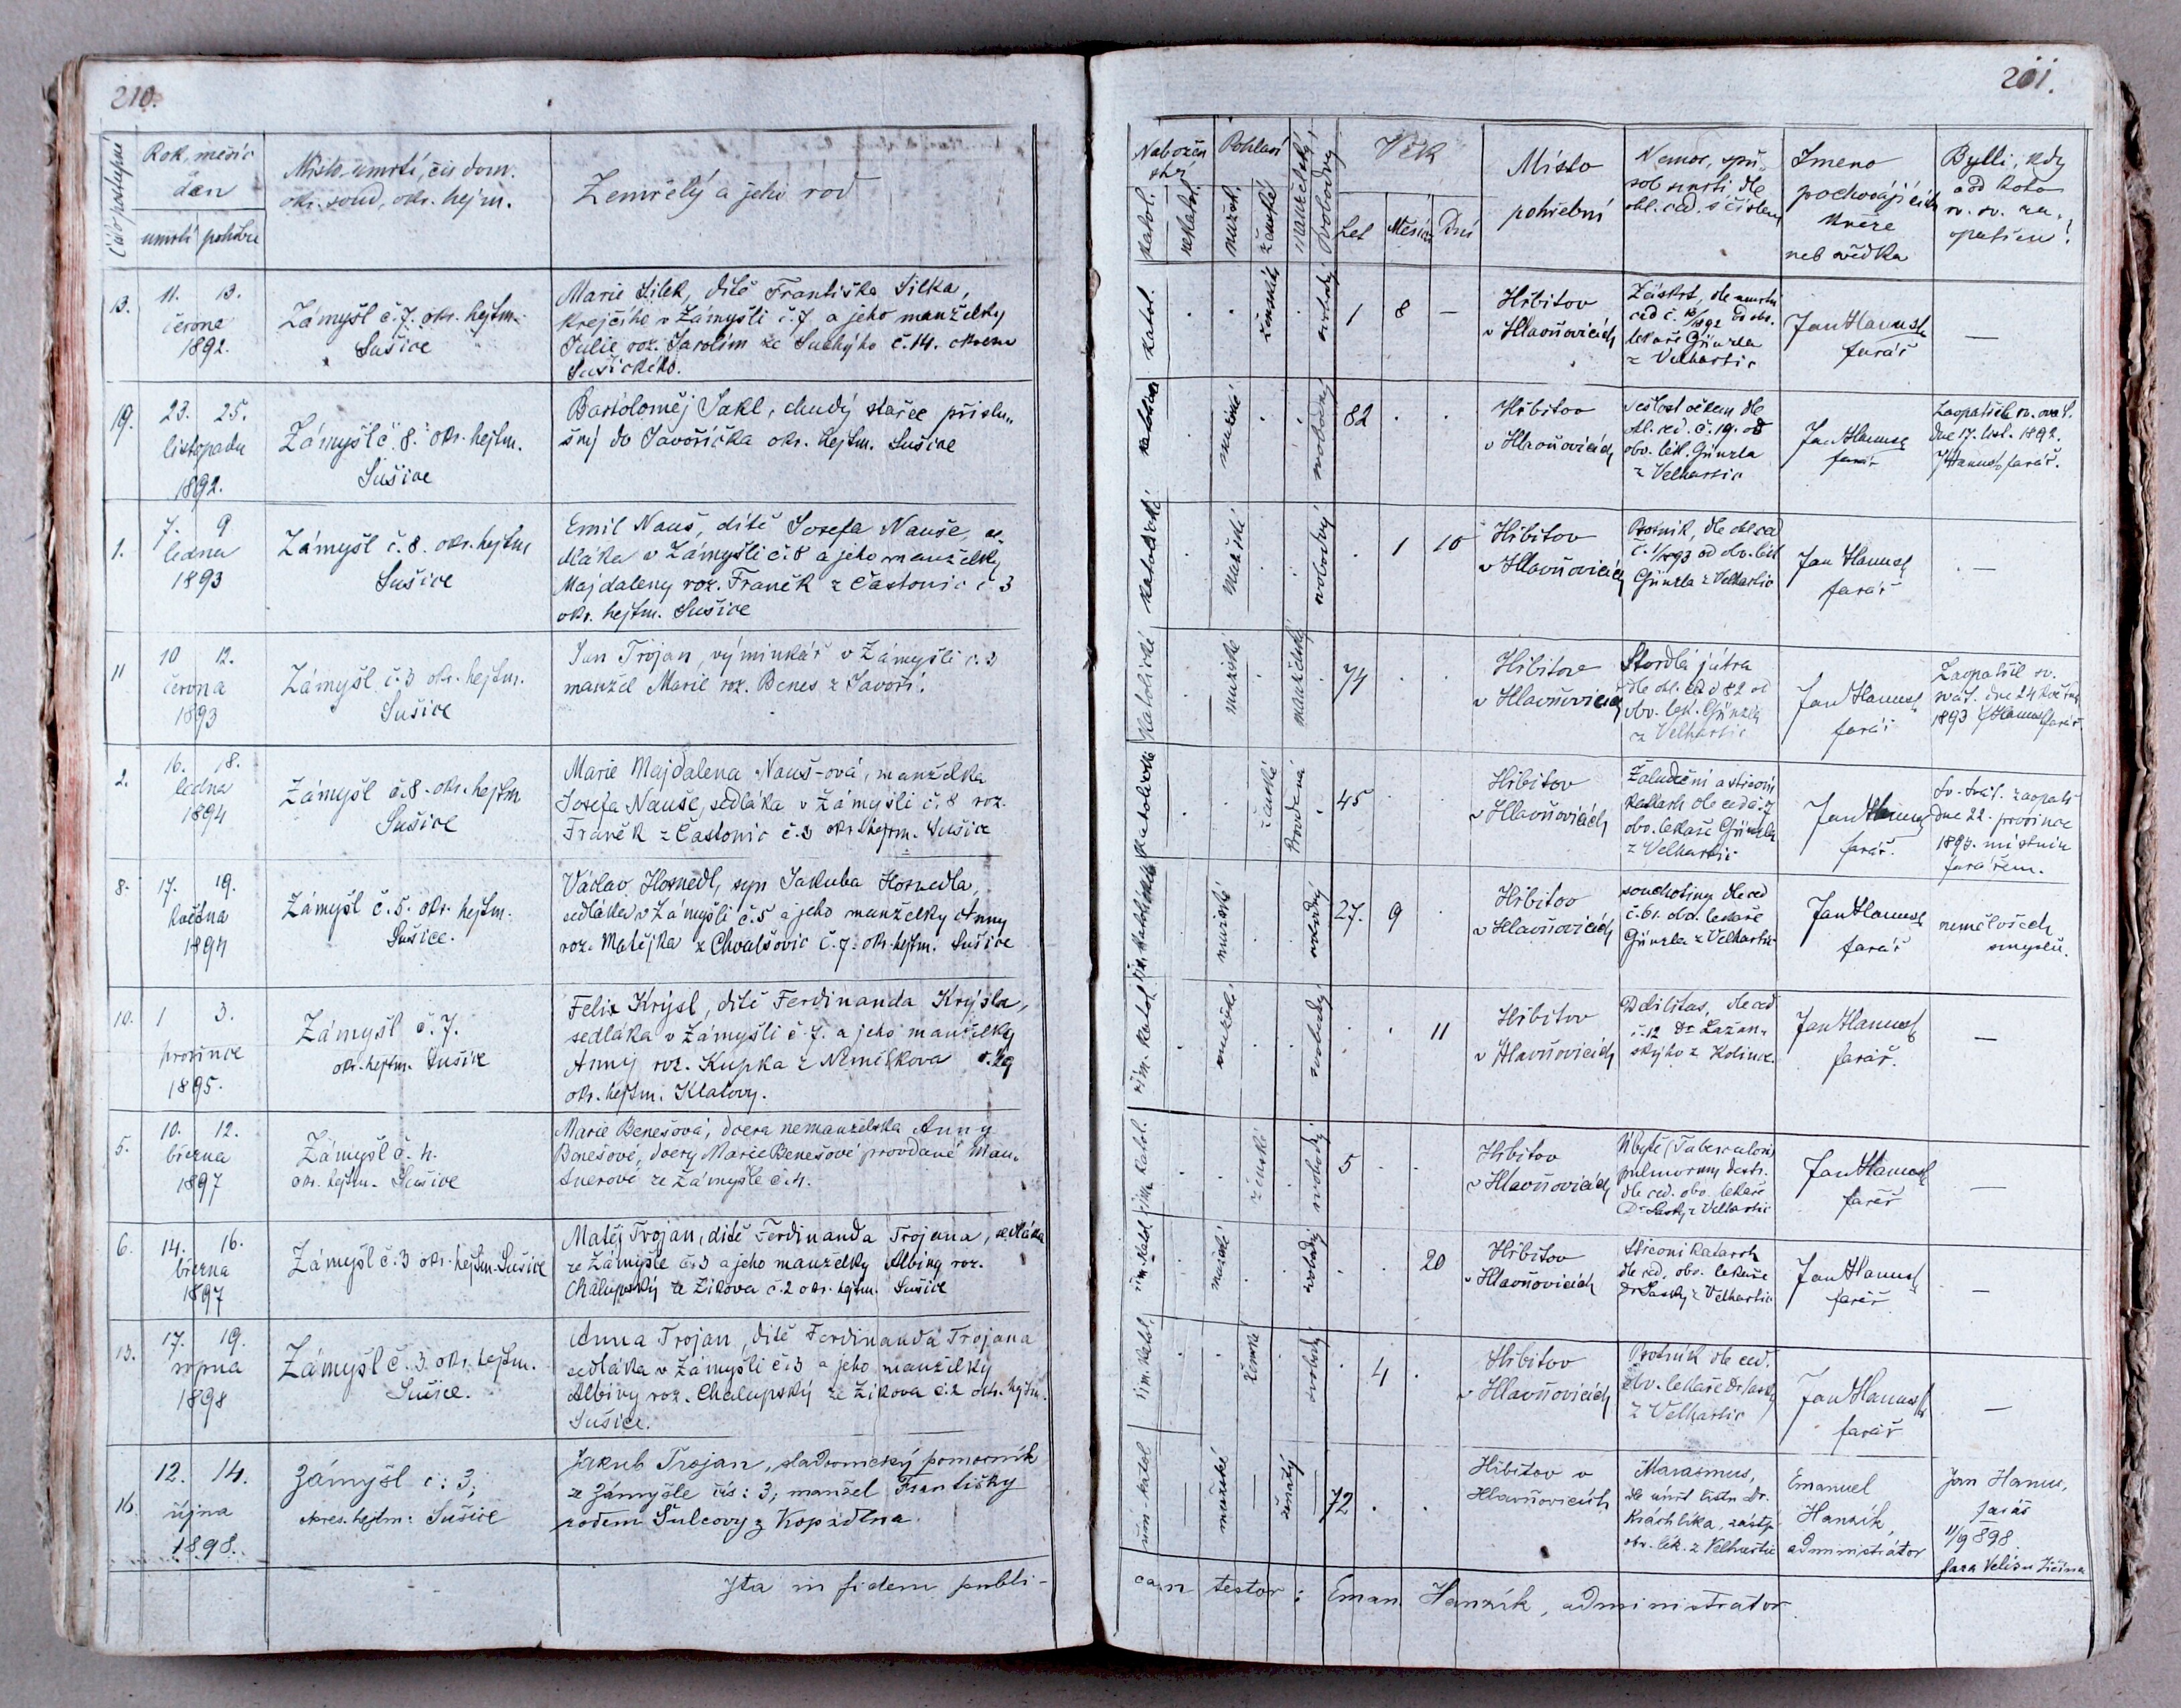 210.
Číslo postupné
Rok, měsíc
den
úmrtí pohřbu
Místo úmrtí, čís dom.
okr. soud, okr. hejm.
Zemřelý a jeho rod
13.
11. 13.
června
1892.
Zámyšl č. 7. okr. hejtm.
Sušice
Marie Silek, dítě Františka Silka,
krejčího v Zámyšli č. 7 a jeho manželky
Julie roz. Jarolím ze Suchýho č. 14. okresu
Sušického.
19.
23. 25.
listopadu
1892.
Zámyšl č. 8. okr. hejtm.
Sušice
Bartoloměj Jakl, chudý stařec příslu„
šný do Javoříčka okr. hejtm. Sušice
1.
7. 9
ledna
1893
Zámyšl č. 8. okr. hejtm
Sušice
Emil Nauš, dítě Josefa Nauše, se„
dláka v Zámyšli č. 8 a jeho manželky
Majdaleny roz. Franěk z Častonic č 3
okr. hejtm. Sušice
11
10 12.
června
1893
Zámyšl č. 3 okr. hejtm.
Sušice
Jan Trojan, výminkář v Zámyšli č. 3
manžel Marie roz. Benes z Javoří.
2.
16. 18.
ledna
1894
Zámyšl č. 8. okr. hejtm
Sušice
Marie Majdalena Nauš-ová, manželka
Josefa Nauše, sedláka v Zámyšli č. 8 roz.
Franěk z Častonic č. 3 okr. hejtm. Sušice
8.
17. 19.
května
1894
Zámyšl č. 5. okr. hejtm.
Sušice.
Václav Hosnedl, syn Jakuba Hosnedla,
sedláka v Zámyšli č. 5 a jeho manželky Anny
roz. Matějka z Chvalšovic č. 7. okr. hejtm. Sušice
10.
1 3.
prosince
1895.
Zámyšl č. 7.
okr. hejtm. Sušice
Felix Krýsl, dítě Ferdinanda Krýsla,
sedláka v Zámyšli č. 7. a jeho manželky
Anny roz. Kupka z Němčikova
okr. hejtm. Klatovy.
5.
10. 12.
března
1897
Zámyšl č. 4.
okr. hejtm. Sušice
Marie Benešová, dcera nemanželska Anny
Benešové, dcery Marie Benešové provdané
ze Zámyšle č. 4.
6.
14. 16.
března
1897
Zámyšl č. 3 okr. hejtm. Sušice
Matěj Trojan, dítě Ferdinanda Trojana, sedláka
ze Zámyšle č. 3 a jeho manželky Albiny roz.
Chalupský ze Zikova č. 2 okr. hejtm. Sušice
13.
17. 19.
srpna
1898
Zámyšl č. 3. okr. hejtm.
Sušice.
Anna Trojan, dítě Ferdinanda Trojana
sedláka v Zámyšli č. 3 a jeho manželky
Albiny roz. Chalupský ze Zikova č. 2 okr. hejtm.
Sušice.
16.
12. 14.
října
1898.
Zámyšl č: 3;
okres. hejtm: Sušice
Jakub Trojan, sladovnický pomocník
ze Zámyšle čís: 3; manžel Františky
rodem Šulcovy z Kopidlna.
Ita in fidem publi-
211.
Nábožen
ství
katol.
nekatol.
Pohlaví
mužsk.
ženské
manželský
svobodný
Věk
Let Měsíců Dní
Místo
pohřební
Nemoc, způ„
sob smrti dle
ohl. ced. s číslem
Jmeno
pochovájících
kněze
neb svědka
Bylli, kdy
a od koho
sv. sv. za„
opatřen?
katol.
ženské
svobodný
1 8 —
Hřbitov
v Hlavňovicích
Záškrt, dle úmrtní
ced č. 18/1892 od obv.
lekaře Günzla
z Velhartic
Jan Hanusch
farář
—
katolické
mužské
svobodný
82
Hřbitov
v Hlavňovicích
Sešlost věkem dle
ohl. ced. č. 19. od
obv. lék. Günzla
z Velhartic
Jan Hanusch
farář
Zaopatřen sv. svát.
dne 17. list. 1892.
J Hanusch farář.
katolické
mužské
svobodný
1 10
Hřbitov
v Hlavňovicích
Psotník, dle ohl ced
č. 1/1893 od obv. lék
Günzla z Velhartic
Jan Hanusch
farář
—
katolické
mužské
manželský
74
Hřbitov
v Hlavňovicích
Stvrdlá játra
dle ohl. ced č 82 od
obv. lek. Günzla
z Velhartic
Jan Hanusch
farář
Zaopatřil sv.
svát. dne 24 května
1893 J Hanusch farář
katolické
ženské
Provdaná
45
Hřbitov
v Hlavňovicích
Žaludeční a střevní
katarh dle ced č. 7
obv. lekaře Günzla
z Velhartic
Jan Hanusch
farář.
Sv. svát. zaopatř
dne 22. prosince
1893. místním
farářem.
mužské
svobodný
27. 9
Hřbitov
v Hlavňovicích
souchotiny dle ced
č. 61. obv. lekaře
Günzla z Velhartic
Jan Hanusch
farář
neměl všech
smyslů.
řím. katol.
mužské
svobodný
11
Hřbitov
v Hlavňovicích
Debilitas, dle ced
č. 12 Dr Lažan„
skýho z Kolince.
Jan Hanusch
farář.
—
řím. katol.
ženské
svobodný
5
Hřbitov
v Hlavňovicích
Úbytě (Tuberculosis
pulmonum dextr.
dle ced. obv. lekaře
z Velhartic
Jan Hanusch
farář
—
řím. katol.
mužské
svobodný
20
Hřbitov
v Hlavňovicích
Střevní katarrh
dle ced. obv. lekaře
z Velhartic
Jan Hanusch
farář
—
řím. katol.
ženské
svobodný
4
Hřbitov
v Hlavňovicích
Psotník dle ced.
obv. lekaře
z Velhartic
Jan Hanusch
farář
—
řím-katol
mužské
ženatý
72
Hřbitov v
Hlavňovicích
Marasmus,
dle úmrt listu Dr.
Kráchlíka, zástp
obv. lék. z Velhartic
Emanuel
Hanzík,
administrátor
Jan Hanus,
farář
11/9 898.
cam testor: Eman. Hanzík, administrator.